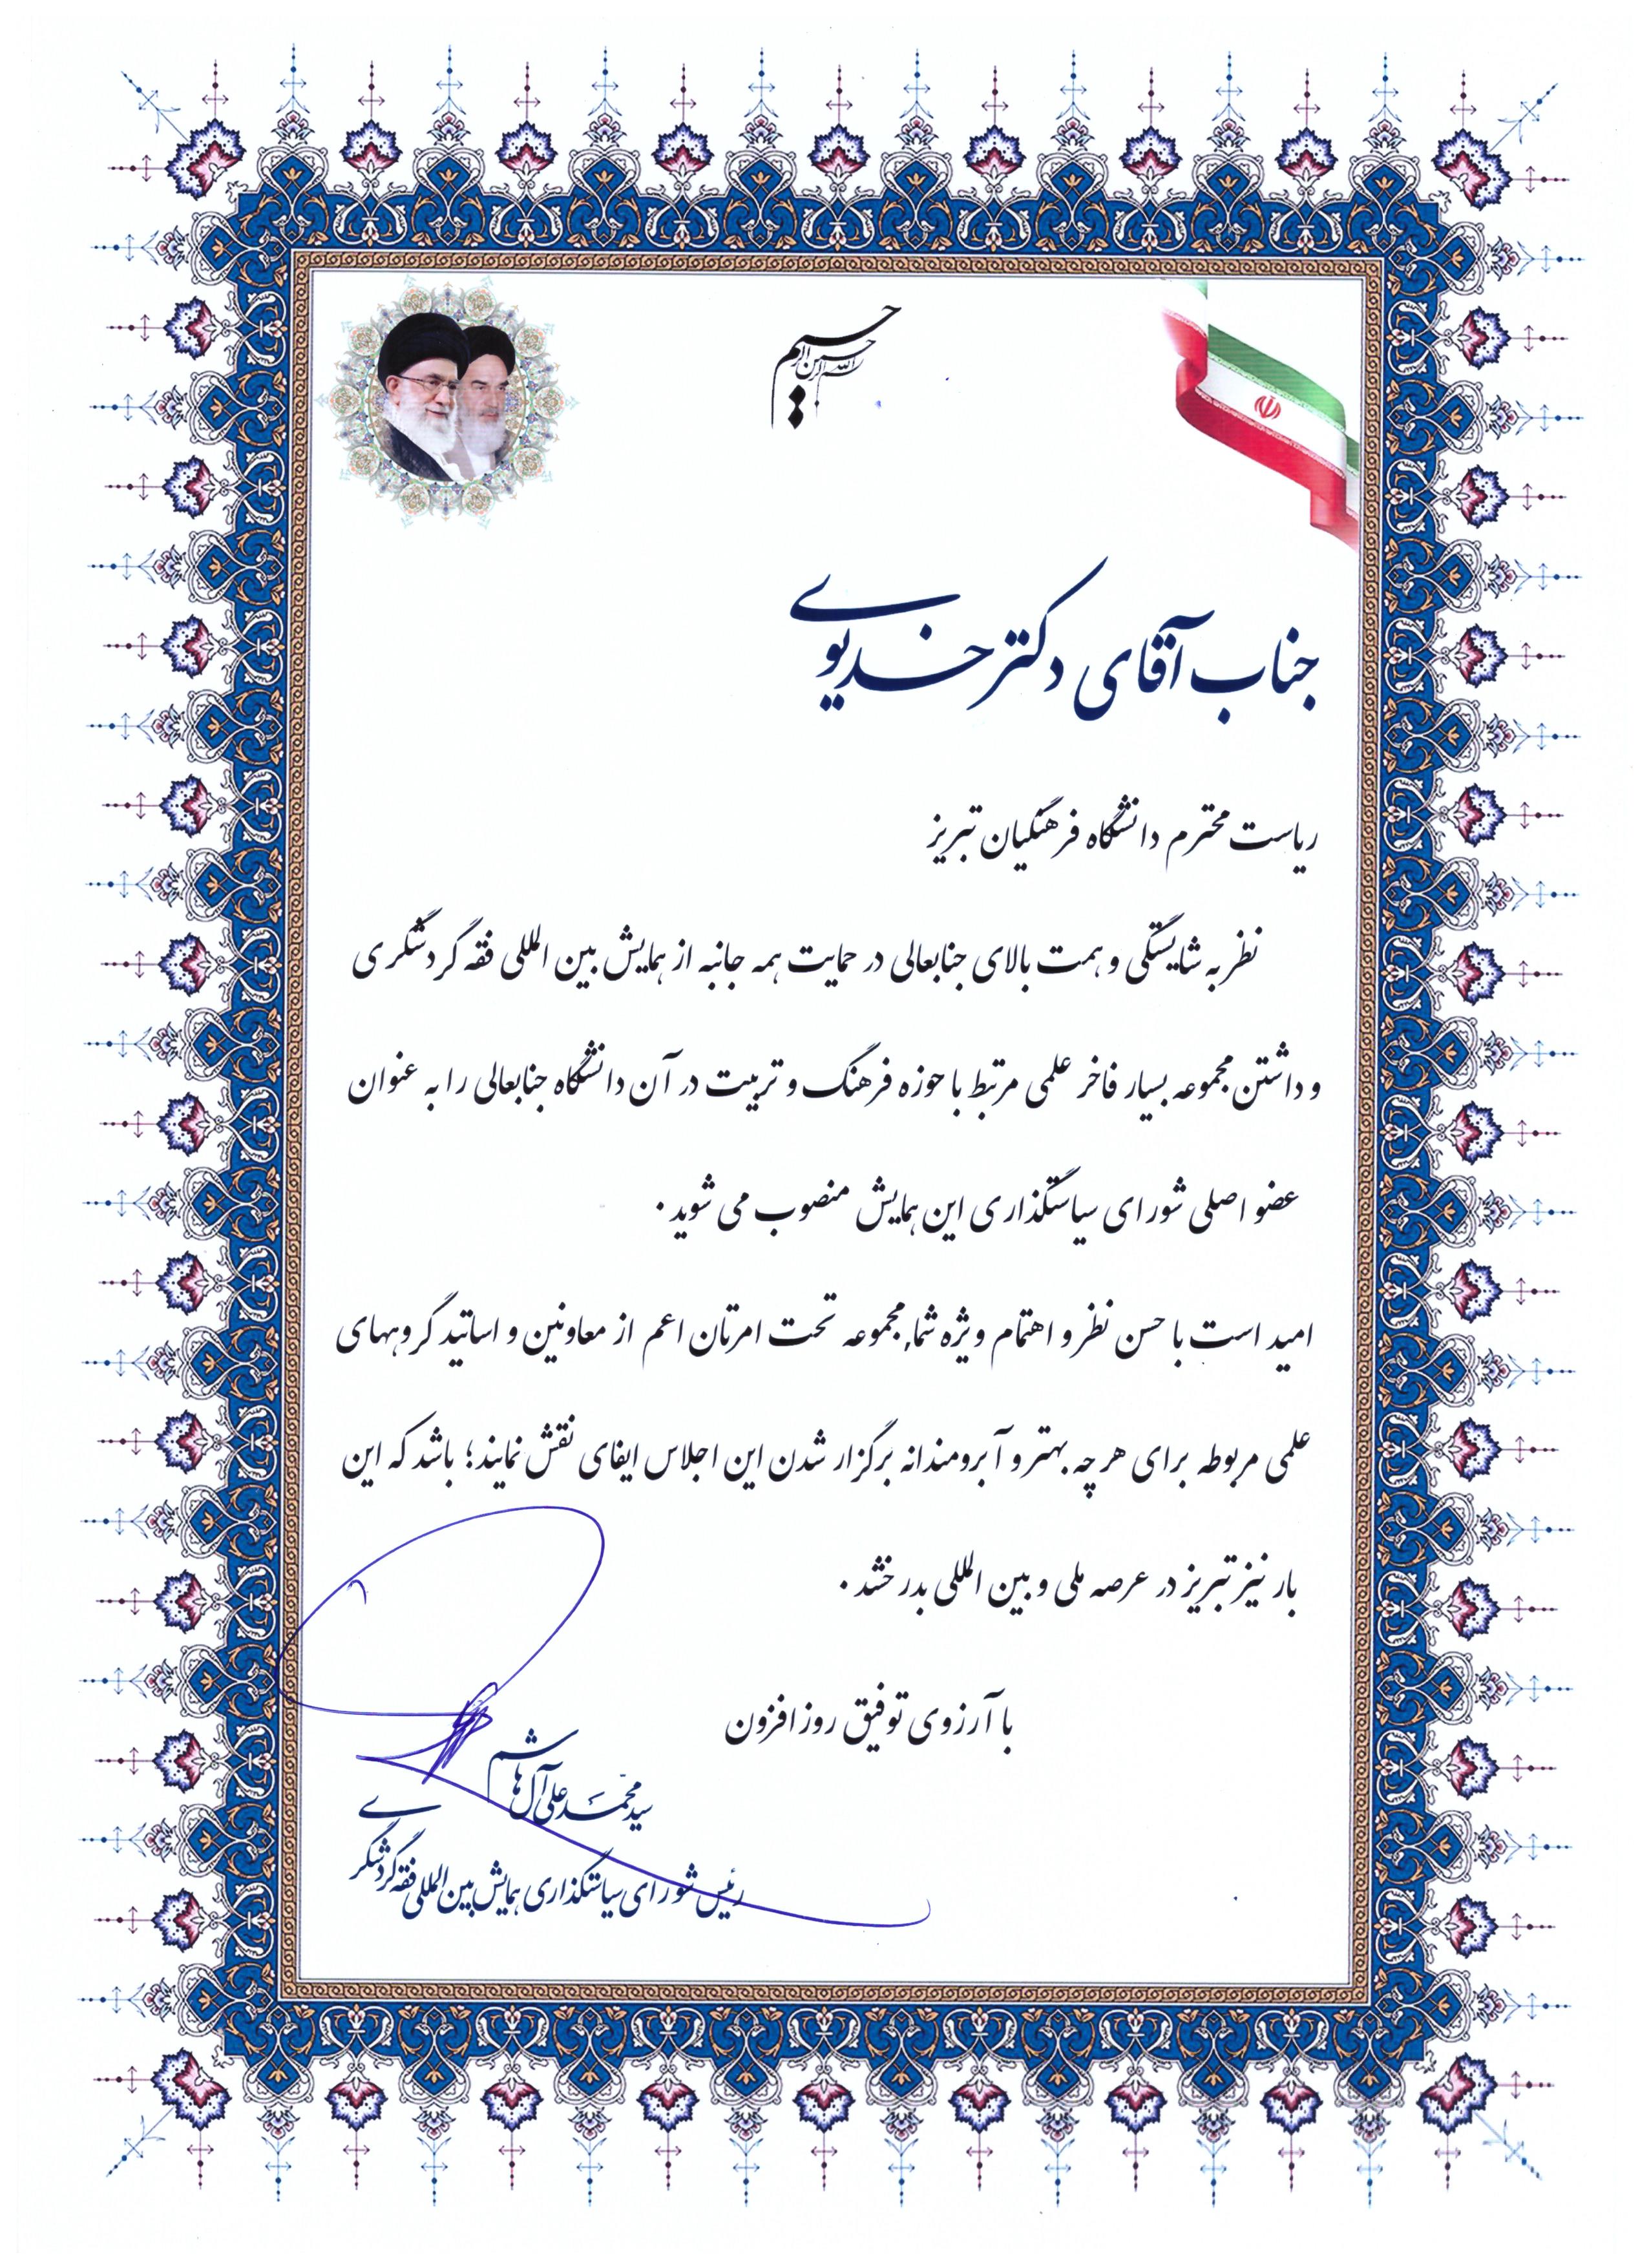 بسم الله الرحمن الرحیم
جناب آقای دکتر خدیوی
ریاست محترم دانشگاه فرهنگیان تبریز
نظر به شایستگی و همت بالای جنابعالی در حمایت همه جانبه از همایش بین المللی فقه گردشگری
و داشتن مجموعه بسیار فاخر علمی مرتبط با حوزه فرهنگ و تربیت در آن دانشگاه جنابعالی را به عنوان
عضو اصلی شورای سیاستگذاری این همایش منصوب می شوید.
امید است با حسن نظر و اهتمام ویژه شما, مجموعه تحت امرتان اعم از معاونین و اساتید گروههای
علمی مربوطه برای هر چه بهتر و آبرومندانه برگزار شدن این اجلاس ایفای نقش نمایند؛ باشد که این
بار نیز تبریز در عرصه ملی و بین المللی بدرخشد.
با آرزوی توفیق روزافزون
سید محمد علی آل هاشم
رئیس شورای سیاستگذاری همایش بین المللی فقه گردشگری